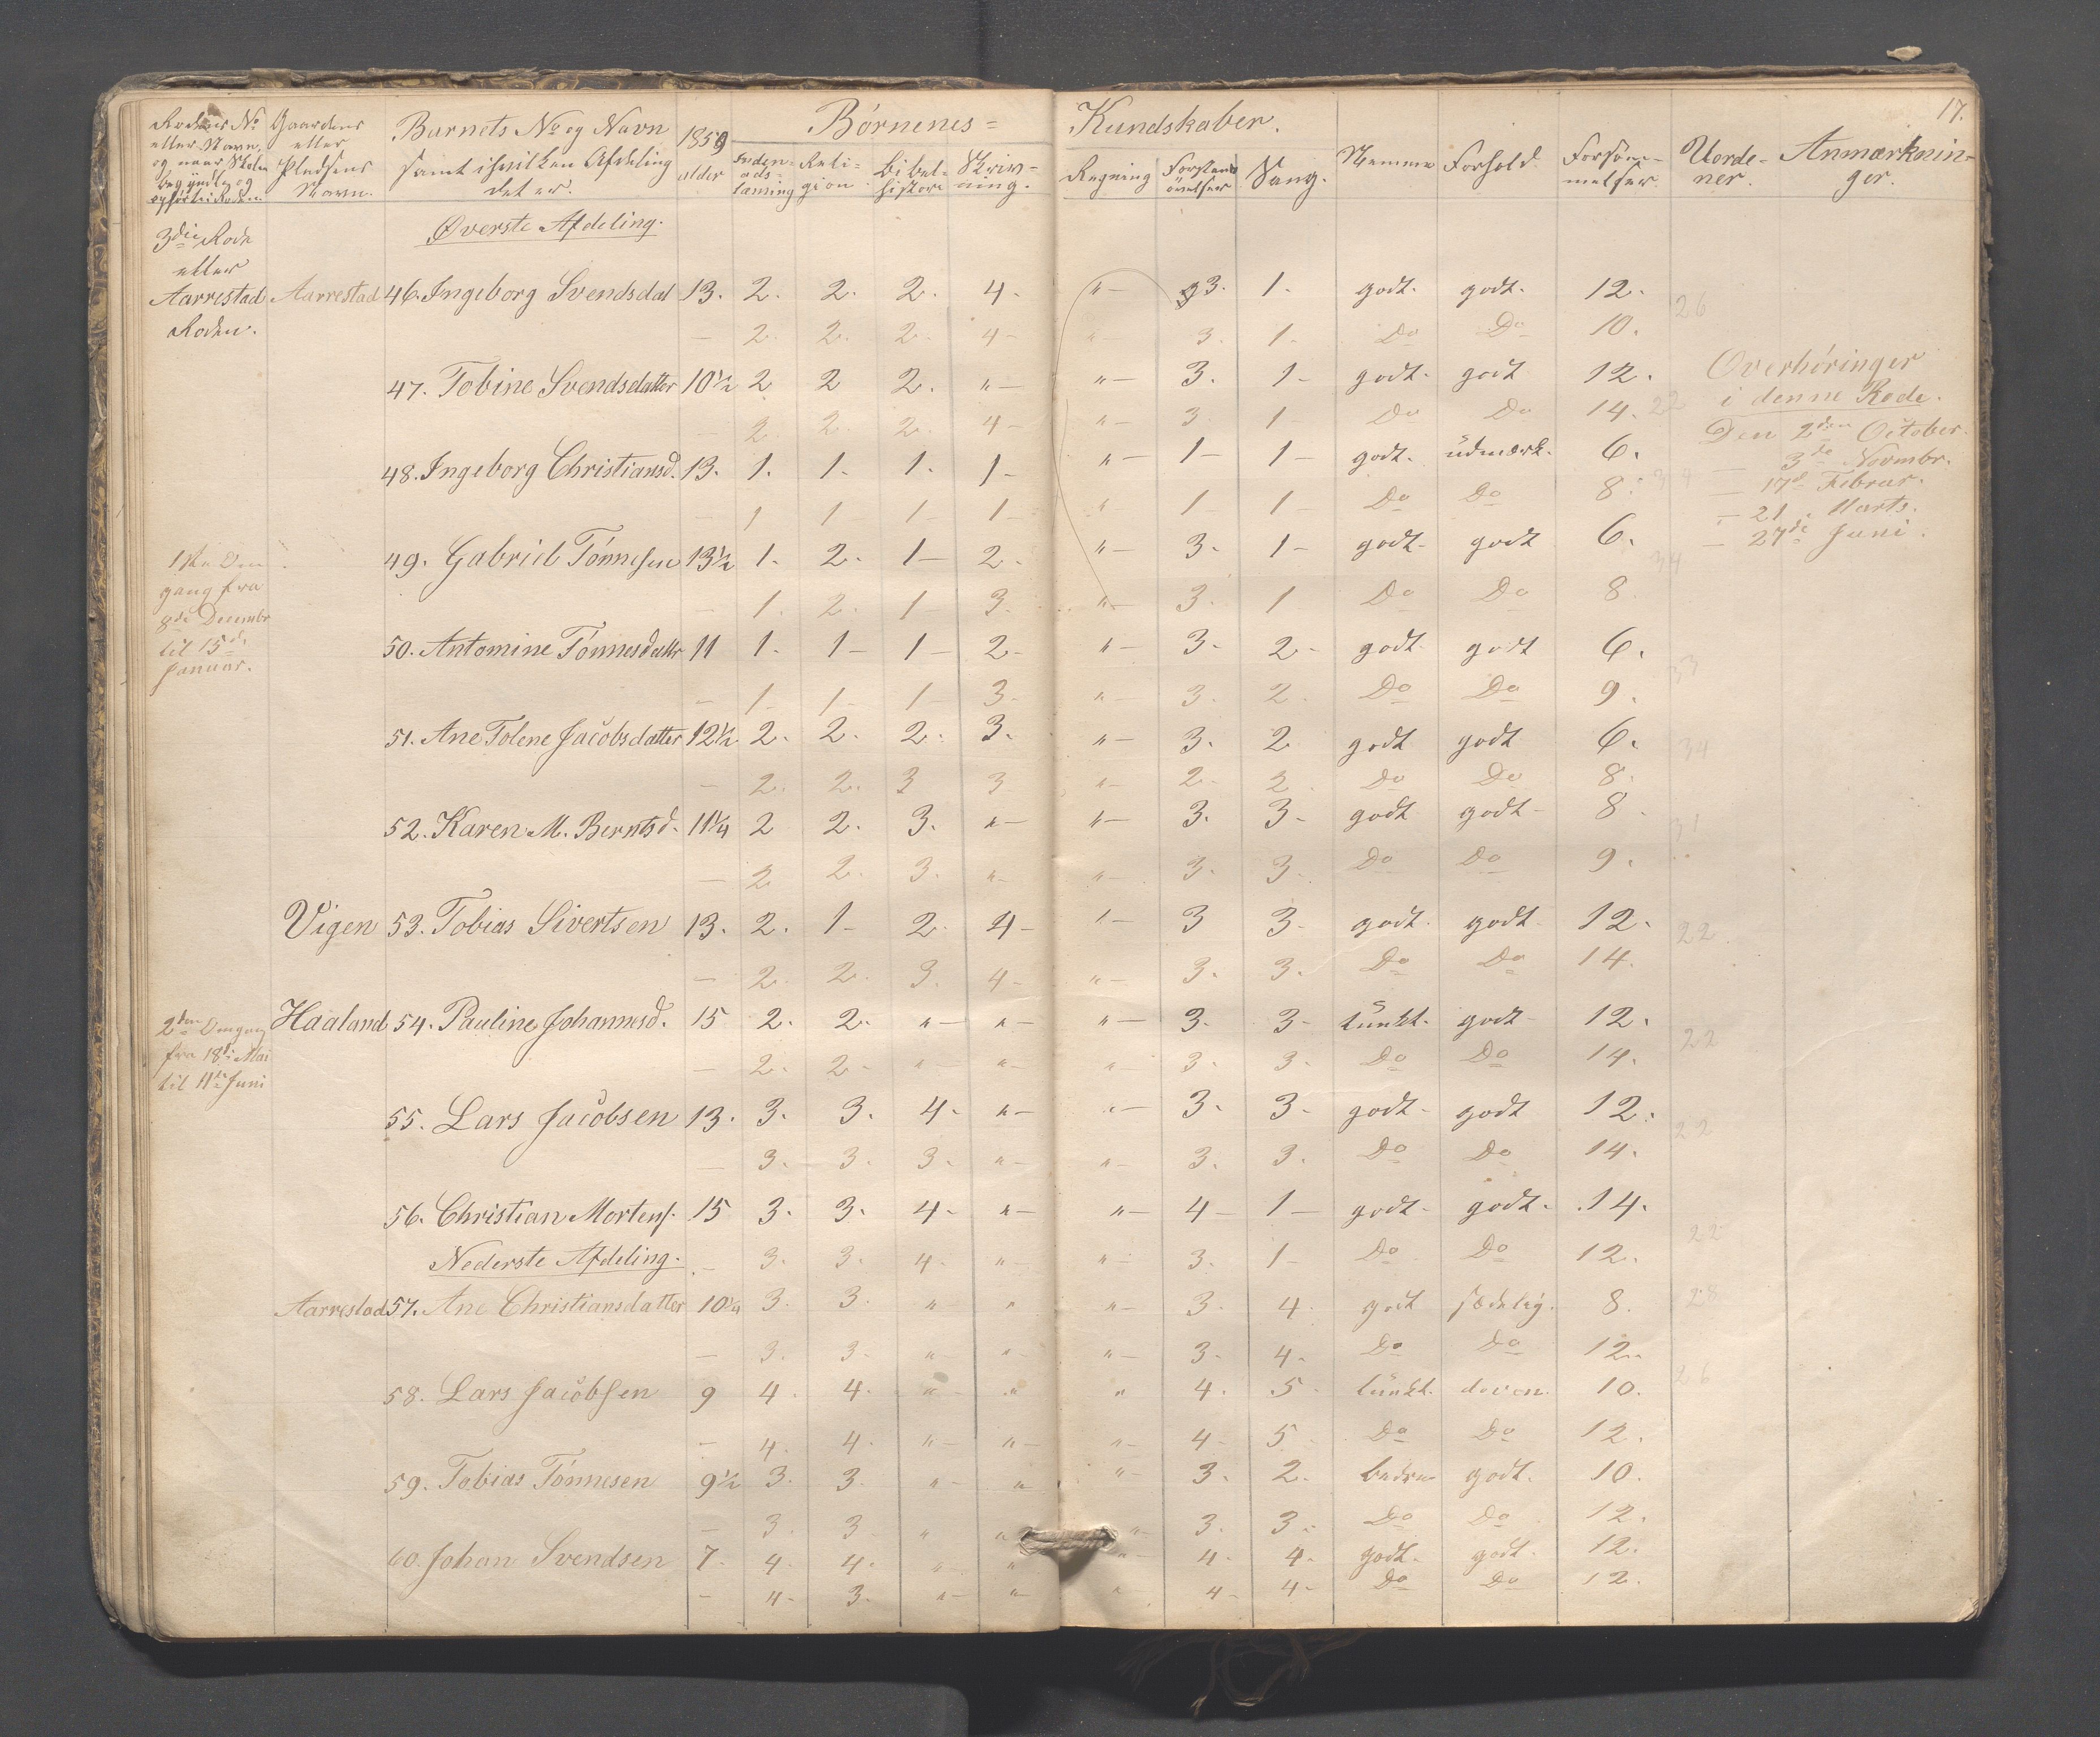 17.
Rodens No Gaardens Barnets No og Navn 1859 Børnenes= Kundskaber.
eller Navn, eller samt ihvilken Afdeling alder Inden- Reli- Bibel- Skriv- Regning Forstands Sang. Nemme Forhold. Forsøm- Uorde- Anmærknin-
og naar Skolen Pladsens det er. ads- gion. historie ning. øvelser melser. ner. ger.
begyndte og Navn. læsning
Øverste Afdeling.
3die Rode
eller
Aarrestad Aarrestad 46. Ingeborg Svendsdat 13. 2. 2. 2. 4. "- 3. 1. godt. godt. 12. 26
Roden. - 2. 2. 2. 4- "- 3. 1. Do Do 10.
47. Tobine Svendsdatter 10½ 2 2 2. "- "- 3. 1- godt. godt 12. 22
- 2. 2. 2. 4- "- 3 1 Do Do 14.
48. Ingeborg Christiansd. 13. 1. 1. 1. 1- "- 1- 1- godt. udmærk. 6.
- 1 1 1- 1- "- 1 1- Do Do 8.
49. Gabriel Tønnesen 13½ 1. 2. 1- 2. "- 3. 1- godt. godt 6. 34
- 1. 2. 1- 3. "- 3. 1 Do Do 8.
50. Antomine Tønnesdattr 11 1. 1- 1- 2- "- 3. 2- godt. godt 6. 33
- 1- 1- 1- 3. "- 3. 2. Do Do 9.
51. Ane Tolene Jacobsdatter 12½ 2. 2. 2. 3. "- 3. 2 godt godt 6. 34
- 2. 2. 3 3 "- 2- 2. Do Do 8.
52. Karen M. Berntsd. 11¼ 2 2. 3. "- "- 3. 3- godt godt- 8. 31
- 2 2. 3. "- "- 3. 3. Do Do 9.
Vigen 53. Tobias Sivertsen 13. 2. 1- 2. 4- "- 3 3- godt. godt- 12. 22.
- 2. 2. 3. 4- "- 3. 3. Do Do 14.
Haaland 54. Pauline Johannesd. 15 2. 2. "- "- "- 3. 3- tunkt. godt- 12. 22
- 2. 2- " "- " 3. 3. Do Do 14.
55. Lars Jacobsen 13. 3. 3. 4- "- "- 3. 3- godt- godt 12. 22
- 3. 3. 3. "- "- 3. 3. Do Do 14.
56. Christian Mortens. 15 3. 3. 4- "- "- 4- 1- godt- godt. 14. 22
Nederste Afdeling. - 3. 3. 4. "- "- 3. 1- Do Do 12.
Aarrestad 57. Ane Christiansdatter 10¼ 3. 3. " " "- 3. 4. godt sædelig. 8. 28
- 3. 3- "- "- "- 3- 4- Do Do 12.
58. Lars Jacobsen 9 4. 4. "- " " 4. 5- tunkt. doven. 10. 26
- 4. 4. "- "- "- 4- 5 Do Do 12.
59. Tobias Tønnesen 9½ 3. 3. "- " "- 3. 2. bedre godt. 10.
- 3. 3 " " "- 3. 3- Do Do 12.
60. Johan Svendsen 7. 4. 4. " " "- 4. 4. godt. godt. 12.
- 4- 3. "- "- " 4- 4- Do Do 12.
Overhøringer
i denne Rode.
Den 2den October.
- 3de Novmbr.
- 17d Februar.
- 21 Marts.
- 27de Juni.
1ste Om
gang fra
8de Decembr
til 15d.
Januar.
2den Omgang
fra 18de Mai
til 11te Juni